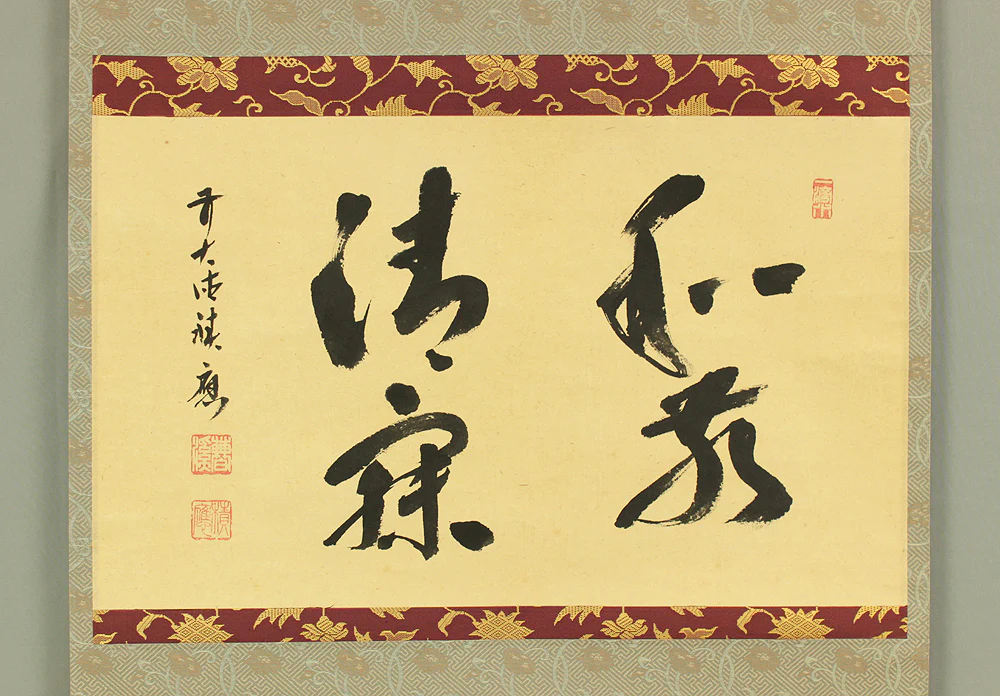 和敬
清寂
前大徳積應
積應